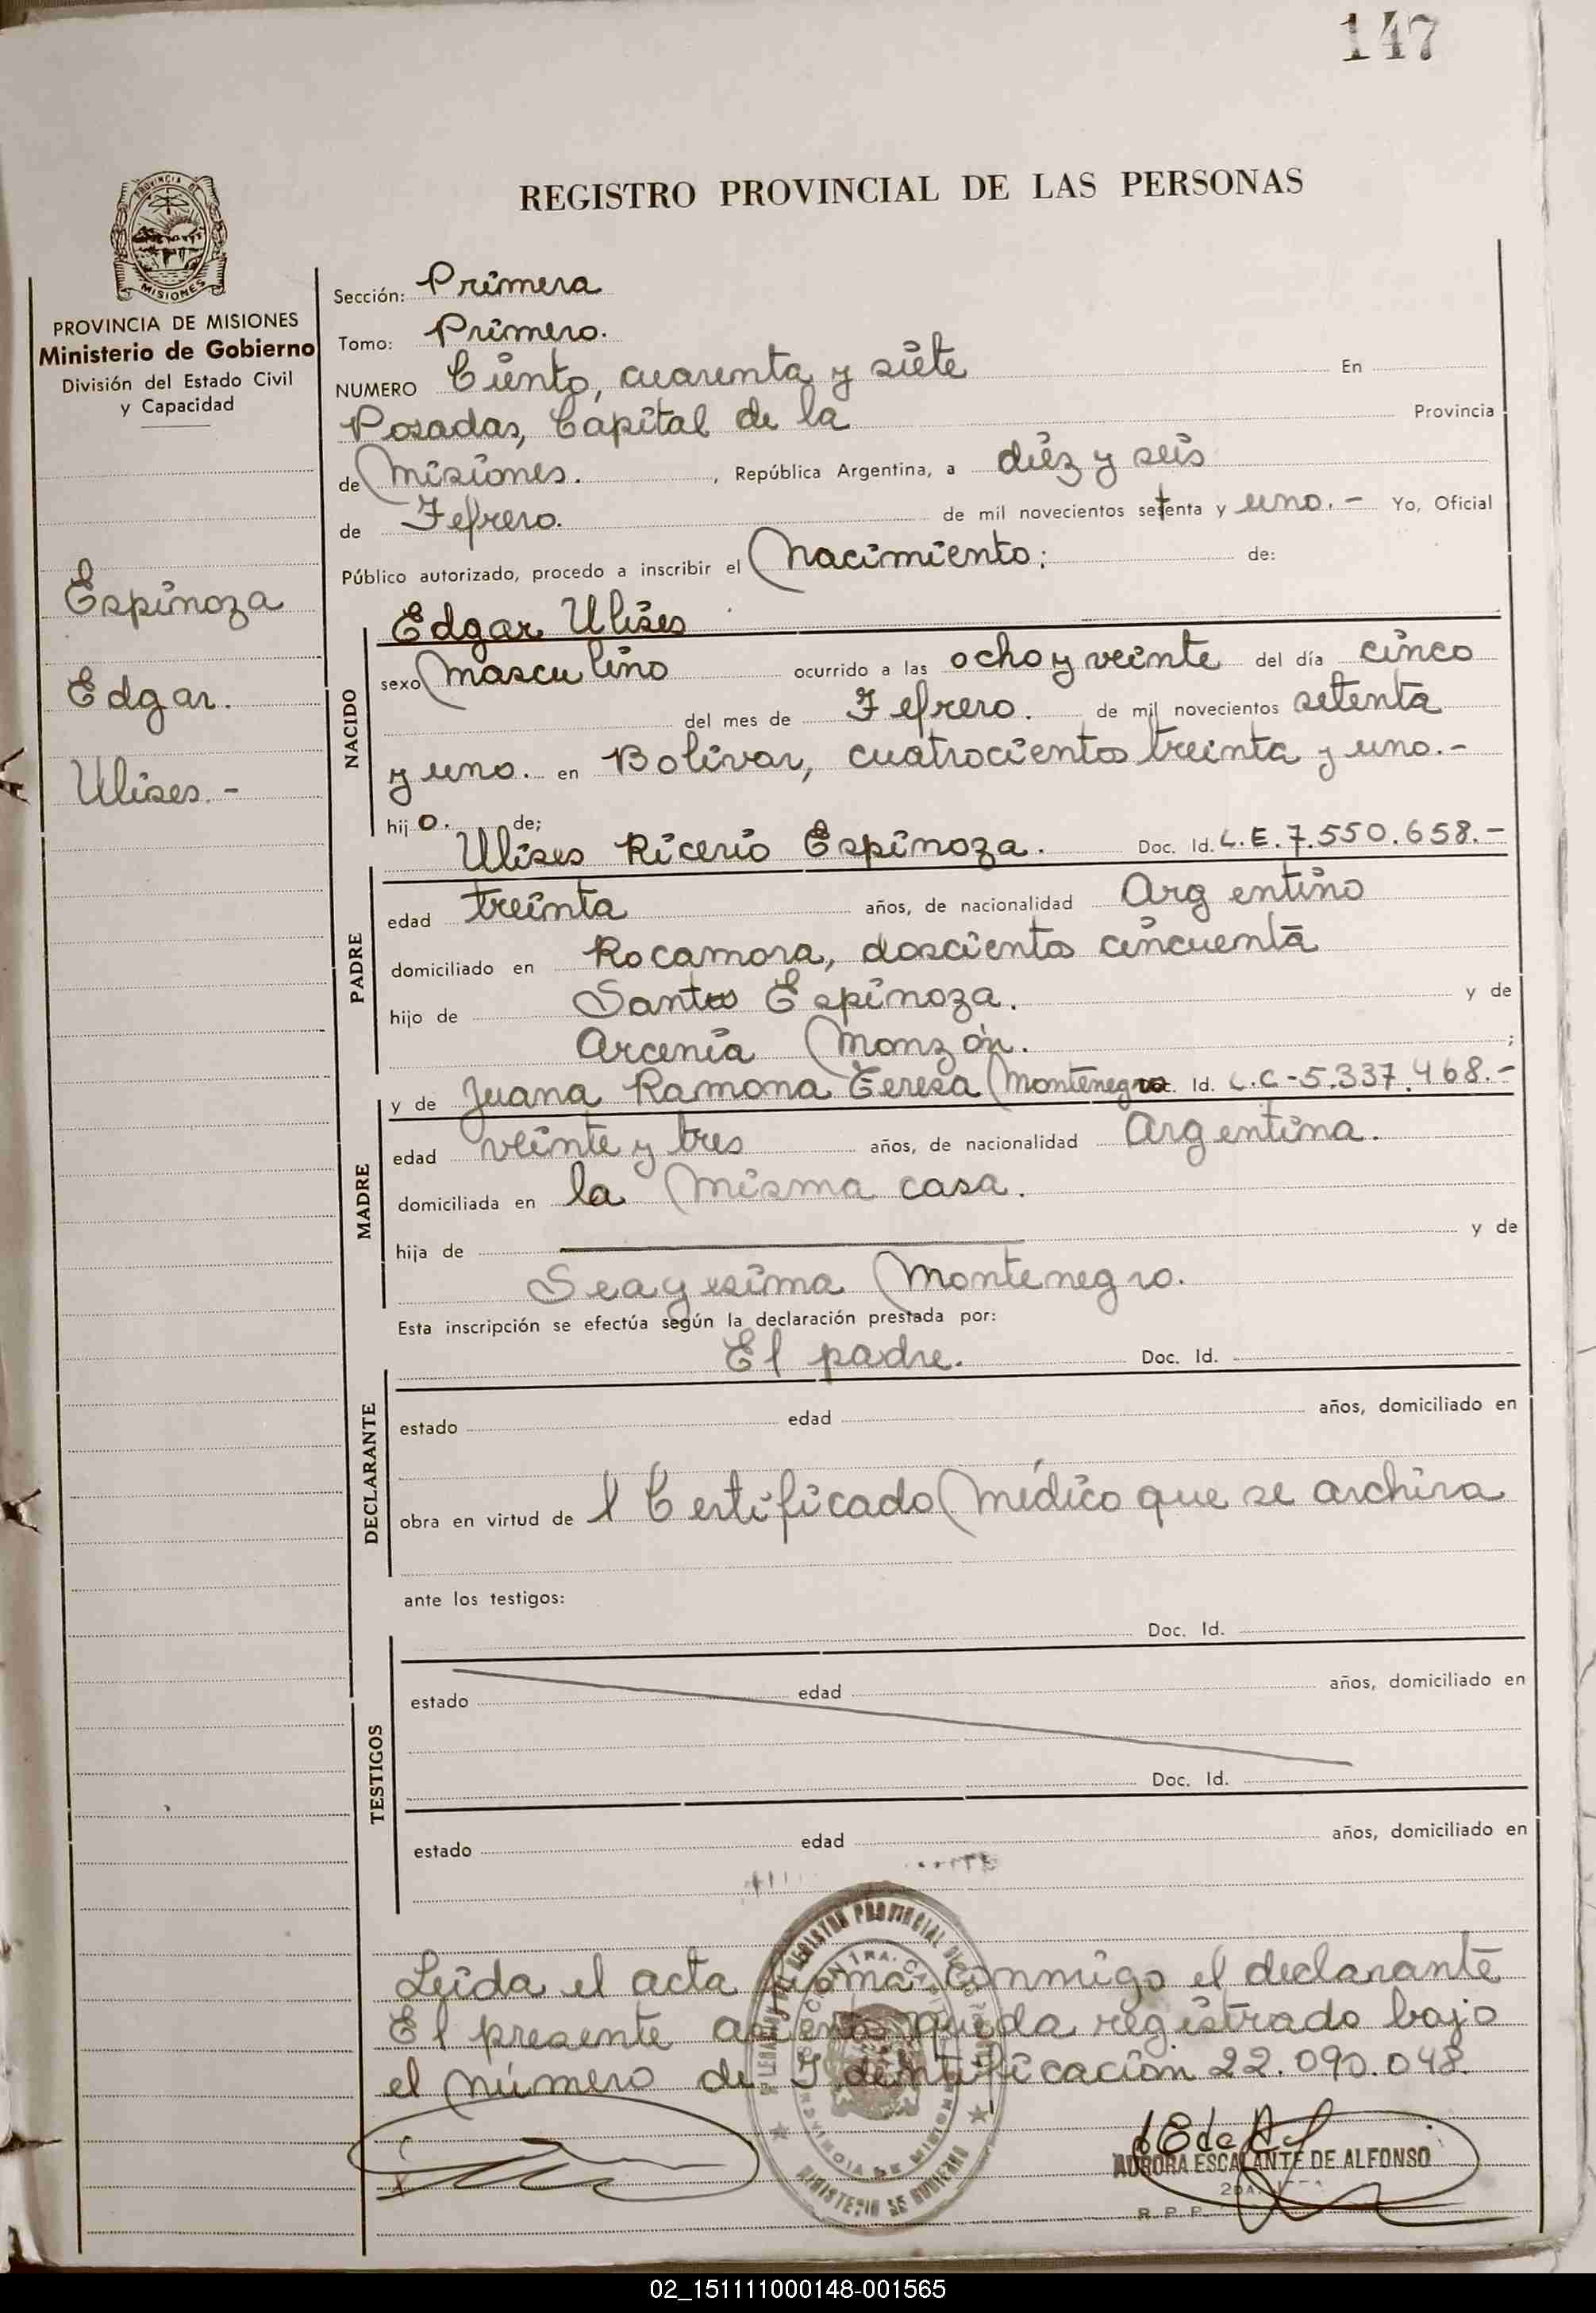 147
REGISTRO PROVINCIAL DE LAS PERSONAS
PROVINCIA DE
MISIONES
PROVINCIA DE MISIONES
Ministerio de Gobierno
División del Estado Civil
y Capacidad
Espinoza
Edgar.
Ulises.-
Sección: Primera
Tomo: Primero.
NUMERO Ciento, cuarenta y siete En
Posadas, Capital de la Provincia
de Misiones. , República Argentina, a diez y seis
de Febrero. de mil novecientos setenta y uno.- Yo, Oficial
Público autorizado, procedo a inscribir el Nacimiento: de:
Edgar Ulises
NACIDO
sexo Masculino ocurrido a las ocho y veinte del día cinco
del mes de Febrero. de mil novecientos setenta
y uno. en Bolívar, cuatrocientos treinta y uno.-
hij o. de;
Ulises Ricerio Espinoza. Doc. Id. L.E. 7.550.658.-
PADRE
edad treinta años, de nacionalidad Argentino
domiciliado en Rocamora, doscientos cincuenta
hijo de Santos Espinoza. y de
Arcenia Monzón. ;
y de Juana Ramona Teresa Montenegro Doc. Id. L.C-5.337.468.-
MADRE
edad veinte y tres años, de nacionalidad Argentina.
domiciliada en la misma casa.
hija de y de
Seagesima Montenegro.
Esta inscripción se efectúa según la declaración prestada por:
El padre. Doc. Id.
DECLARANTE
estado edad años, domiciliado en
obra en virtud de l Certificado Médico que se archiva
ante los testigos:
Doc. Id.
TESTIGOS
estado edad años, domiciliado en
Doc. Id.
estado edad años, domiciliado en
Leída el acta firma conmigo el declarante
El presente asiento queda registrado bajo
el número de Identificación 22.090.048.
REGISTRO PROVINCIAL
PROVINCIA DE MISIONES
MINISTERIO DE GOBIERNO
AURORA ESCALANTE DE ALFONSO
2DA.
R. P. P.
02_151111000148-001565